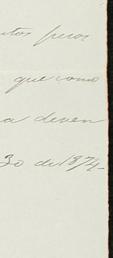 ntos pesos
que como
a deven
30 de 1874-